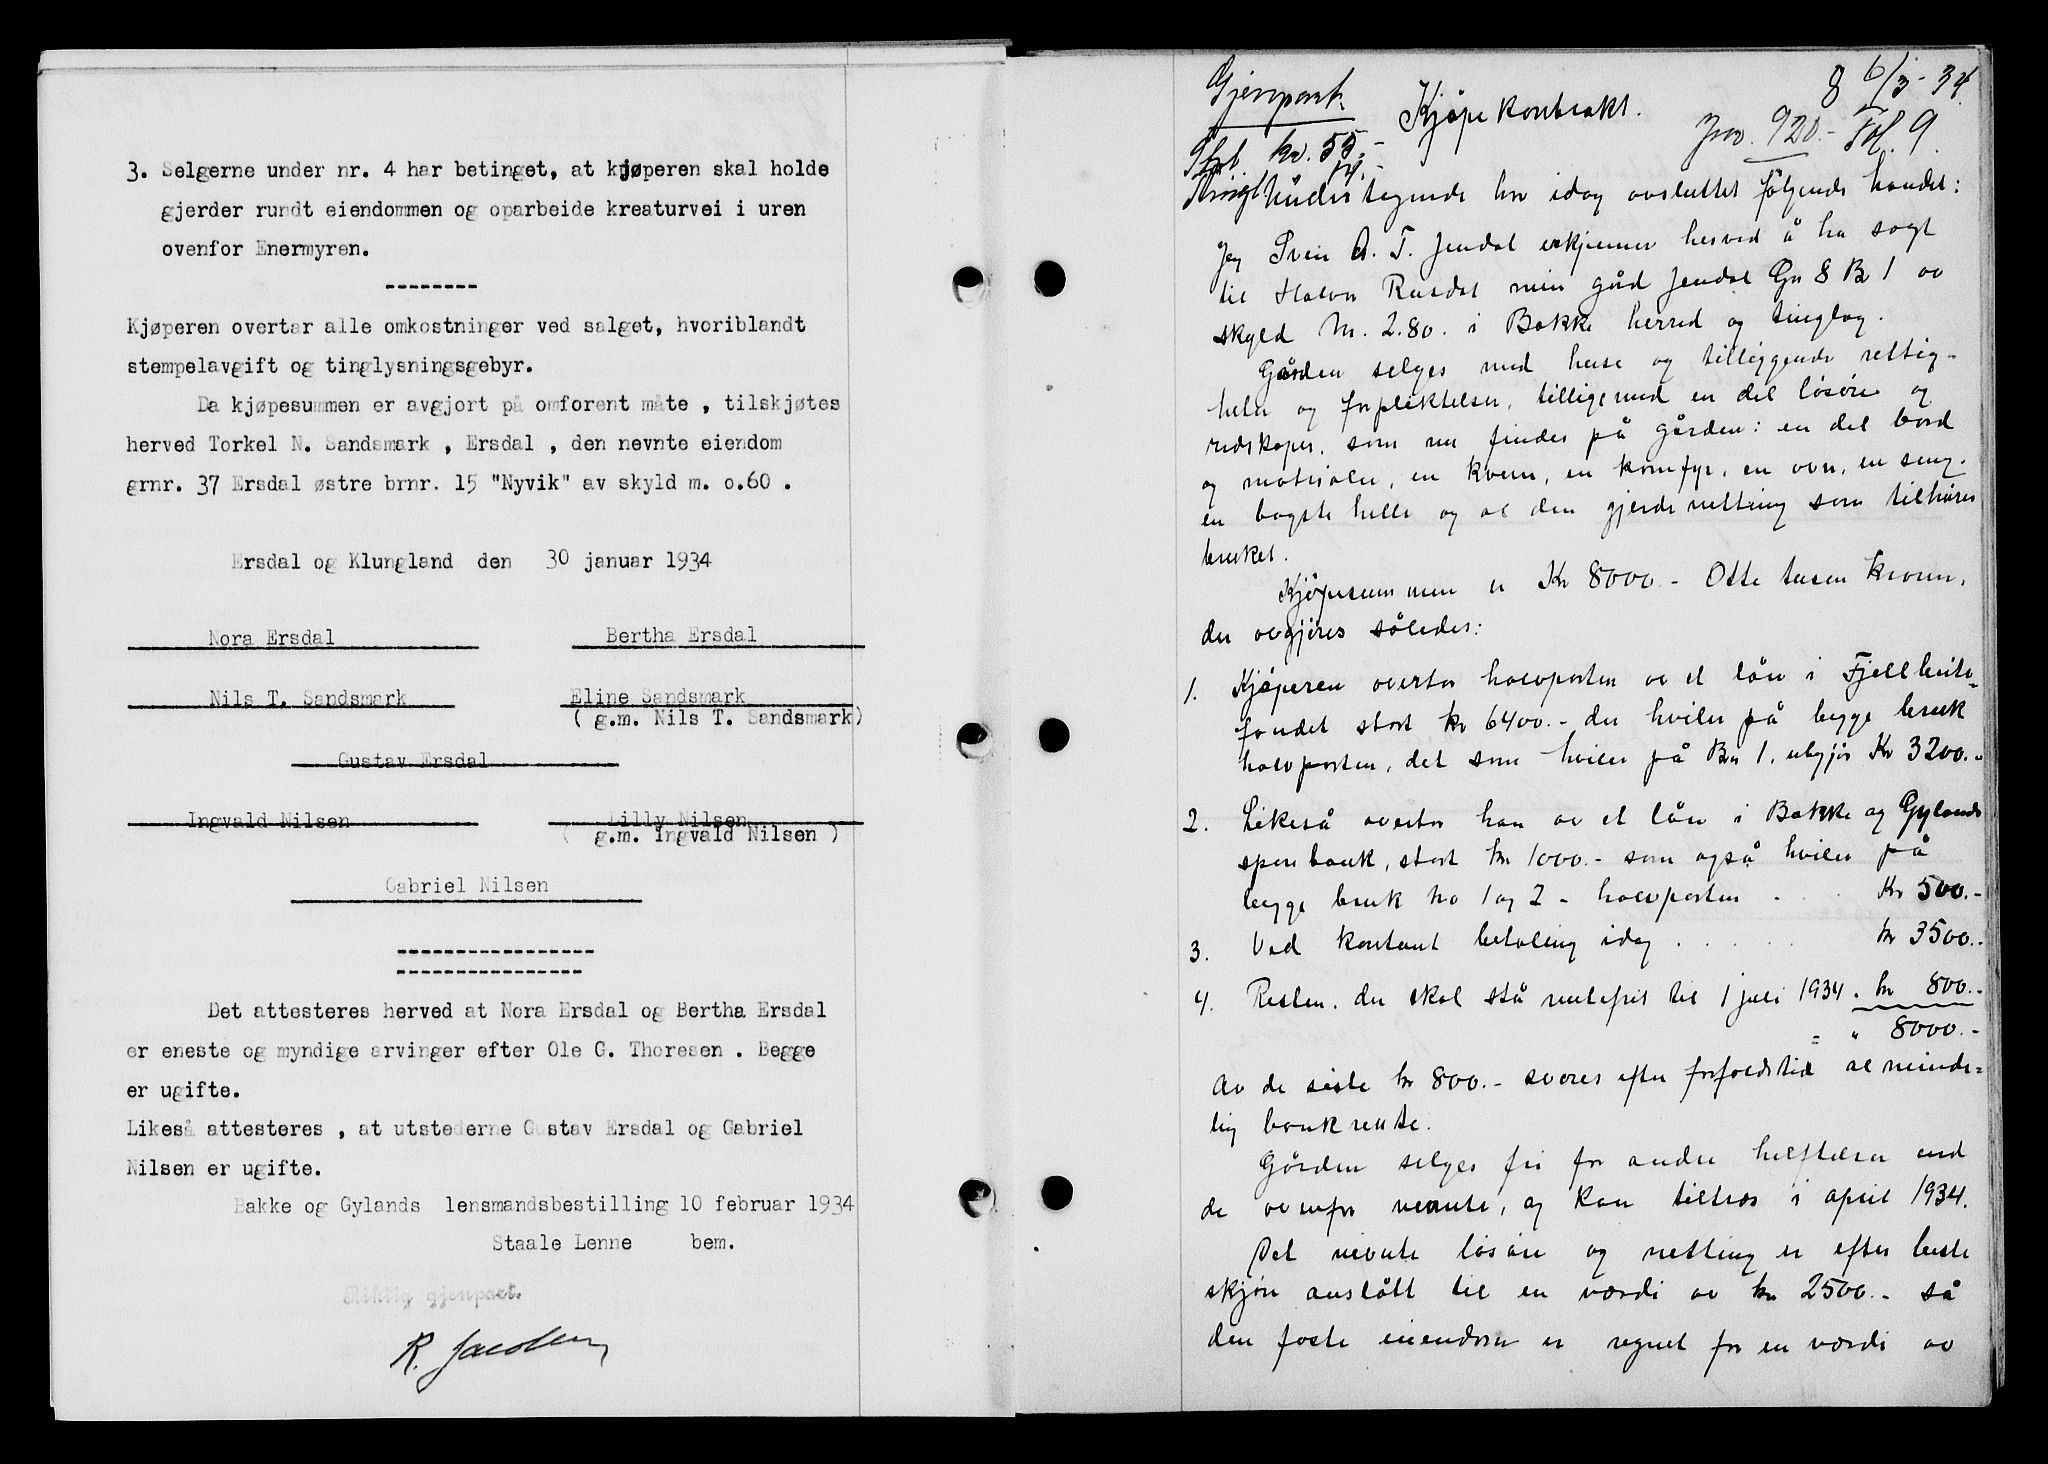 3. Selgerne under nr. 4 har betinget, at kjøperen skal holde
gjerder rundt eiendommen og oparbeide kreaturvei i uren
ovenfor Enermyren.
--------
Kjøperen overtar alle omkostninger ved salget, hvoriblandt
stempelavgift og tinglysningsgebyr.
Da kjøpesummen er avgjort på omforent måte , tilskjøtes
herved Torkel N. Sandsmark , Ersdal , den nevnte eiendom
grnr. 37 Ersdal østre brnr. 15 "Nyvik" av skyld m. o.60 .
Ersdal og Klungland den 30 januar 1934
Nora Ersdal Bertha Ersdal
Nils T. Sandsmark Eline Sandsmark
( g.m. Nils T. Sandsmark)
Gustav Ersdal
Ingvald Nilsen Lilly Nilsen
( g.m. Ingvald Nilsen )
Gabriel Nilsen
Det attesteres herved at Nora Ersdal og Bertha Ersdal
er eneste og myndige arvinger efter Ole G. Thoresen . Begge
er ugifte.
Likeså attesteres , at utstederne Gustav Ersdal og Gabriel
Nilsen er ugifte.
Bakke og Gylands lensmandsbestilling 10 februar 1934
Staale Lenne bem.
Riktig gjenpart.
R. Jacobsen
Gjenpart. Kjøpekontrakt. 8 6/3-34
Jnr. 920.- Fol. 9.
kr. 55.-
Undertegnede har idag avsluttet følgende handel:
Jeg Sven A. T. Jendal erkjenner herved å ha solgt
til Halvor Rusdal min gård Jendal Gn 8 B 1 av
skyld M. 2.80. i Bakke herred og tinglag.
Gården selges med huse og tilliggende rettig-
heter og forpliktelser, tillikemed en del løsøre og
redskaper, som nu findes på gården: en del bord
og materialer, en kvern, en komfyr, en ovn, en seng.
en bagstehelle og al den gjerde netting som tilhører
bruket.
Kjøpesummen er Kr 8000.- Otte tusen kroner,
der avgjøres således:
1. Kjøperen overtar halvparten av et lån i Fjellbruks-
fondet stort kr 6400.- der hviler på begge bruk
halvparten, det som hviler på Bn 1. utgjør Kr 3200.-
2. Likeså overtar han av et lån i Bakke og Gylands
sparebank, stort kr 1000.- som også hviler på
begge bruk no 1 og 2 - halvparten . . . Kr 500.-
3. Ved kontant betaling idag . . . . . kr 3500.-
4. Resten. der skal stå rentefrit til 1 juli 1934 . kr 800.-
= " 8000.-
Av de siste kr 800.- svares efter forfaldstid alminde-
lig bankrente.
Gården selges fri for andre heftelser end
de ovenfor nevnte, og kan tiltræs i april 1934.
Det nevnte løsøre og netting er efter beste
skjøn anslått til en værdi av kr 2500.- så
den faste eiendom er regnet for en værdi av